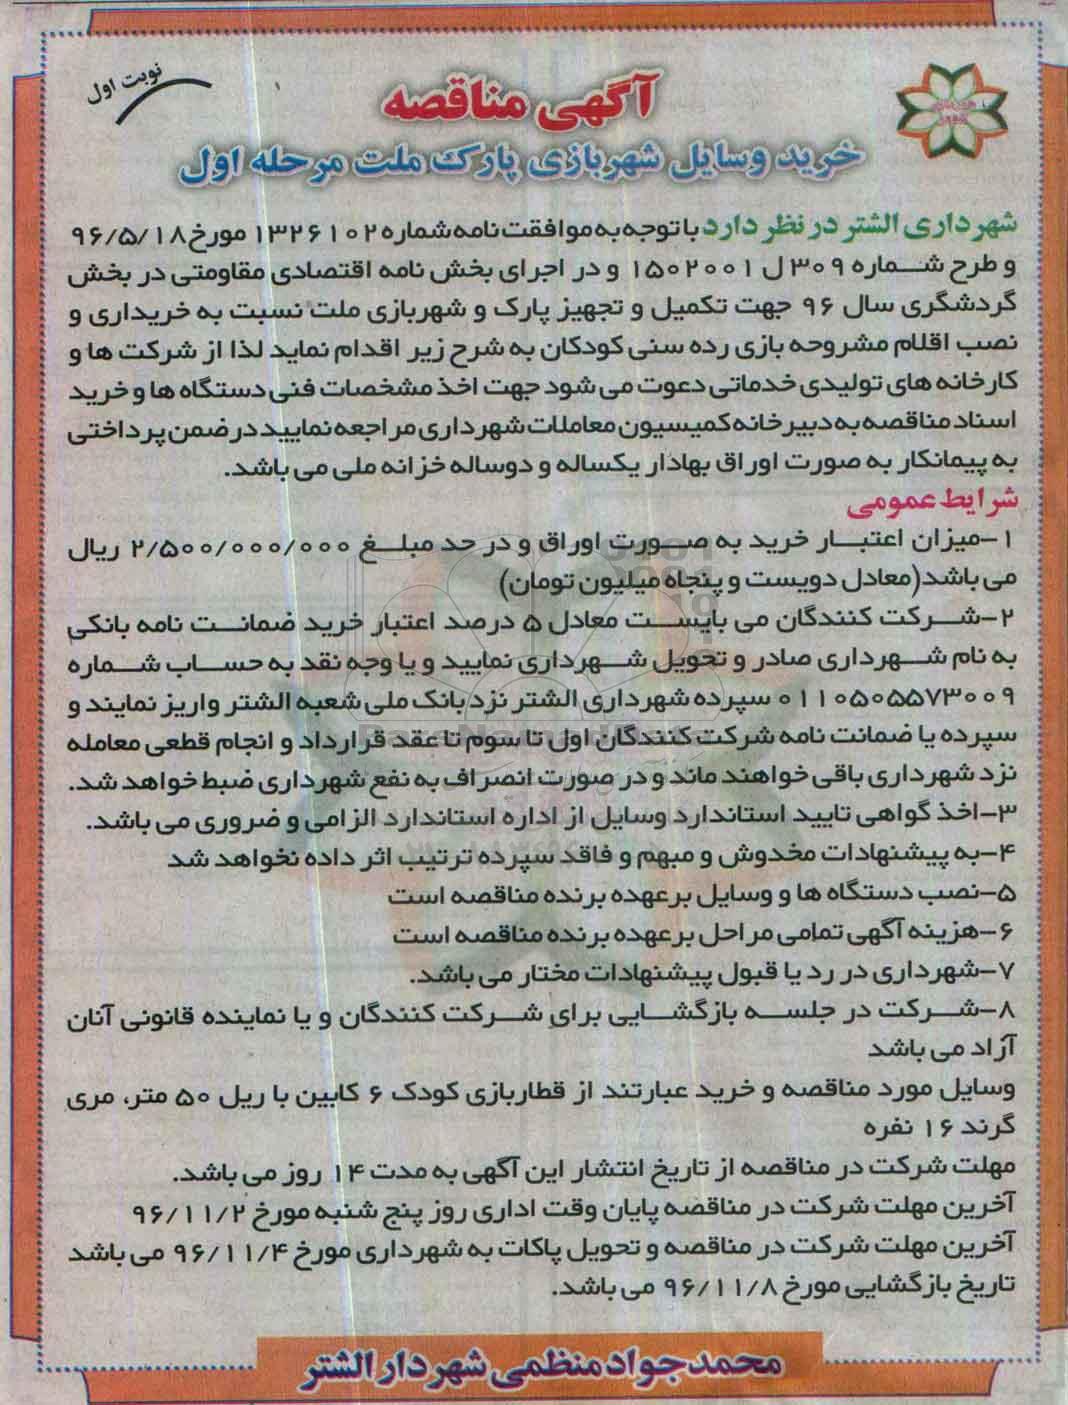 نوبت اول
آگهی مناقصه
خرید وسایل شهربازی پارک ملت مرحله اول
شهرداری الشتر در نظر دارد با توجه به موافقت نامه شماره ۱۳۲۶۱۰۲ مورخ ۹۶/۵/۱۸
و طرح شماره ۳۰۹ ل ۱۵۰۲۰۰۱ و در اجرای بخش نامه اقتصادی مقاومتی در بخش
گردشگری سال ۹۶ جهت تکمیل و تجهیز پارک و شهربازی ملت نسبت به خریداری و
نصب اقلام مشروحه بازی رده سنی کودکان به شرح زیر اقدام نماید لذا از شرکت ها و
کارخانه های تولیدی خدماتی دعوت می شود جهت اخذ مشخصات فنی دستگاه ها و خرید
اسناد مناقصه به دبیرخانه کمیسیون معاملات شهرداری مراجعه نمایید در ضمن پرداختی
به پیمانکار به صورت اوراق بهادار یکساله و دوساله خزانه ملی می باشد.
شرایط عمومی
۱-میزان اعتبار خرید به صورت اوراق و در حد مبلغ ۲/۵۰۰/۰۰۰/۰۰۰ ریال
می باشد(معادل دویست و پنجاه میلیون تومان)
۲-شرکت کنندگان می بایست معادل ۵ درصد اعتبار خرید ضمانت نامه بانکی
به نام شهرداری صادر و تحویل شهرداری نمایید و یا وجه نقد به حساب شماره
۰۱۱۰۵۰۵۵۷۳۰۰۹ سپرده شهرداری الشتر نزد بانک ملی شعبه الشتر واریز نمایند و
سپرده یا ضمانت نامه شرکت کنندگان اول تا سوم تا عقد قرارداد و انجام قطعی معامله
نزد شهرداری باقی خواهند ماند و در صورت انصراف به نفع شهرداری ضبط خواهد شد.
۳-اخذ گواهی تایید استاندارد وسایل از اداره استاندارد الزامی و ضروری می باشد.
۴-به پیشنهادات مخدوش و مبهم و فاقد سپرده ترتیب اثر داده نخواهد شد
۵-نصب دستگاه ها و وسایل برعهده برنده مناقصه است
۶-هزینه آگهی تمامی مراحل برعهده برنده مناقصه است
۷-شهرداری در رد یا قبول پیشنهادات مختار می باشد.
۸-شرکت در جلسه بازگشایی برای شرکت کنندگان و یا نماینده قانونی آنان
آزاد می باشد
وسایل مورد مناقصه و خرید عبارتند از قطاربازی کودک ۶ کابین با ریل ۵۰ متر، مری
گرند ۱۶ نفره
مهلت شرکت در مناقصه از تاریخ انتشار این آگهی به مدت ۱۴ روز می باشد.
آخرین مهلت شرکت در مناقصه پایان وقت اداری روز پنج شنبه مورخ ۹۶/۱۱/۲
آخرین مهلت شرکت در مناقصه و تحویل پاکات به شهرداری مورخ ۹۶/۱۱/۴ می باشد
تاریخ بازگشایی مورخ ۹۶/۱۱/۸ می باشد.
محمدجواد منظمی شهردار الشتر